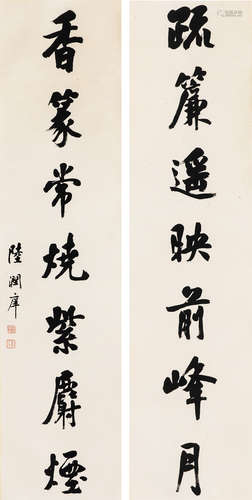 疏簾遥映前峰月
香篆常燒紫麝煙
陸潤庠